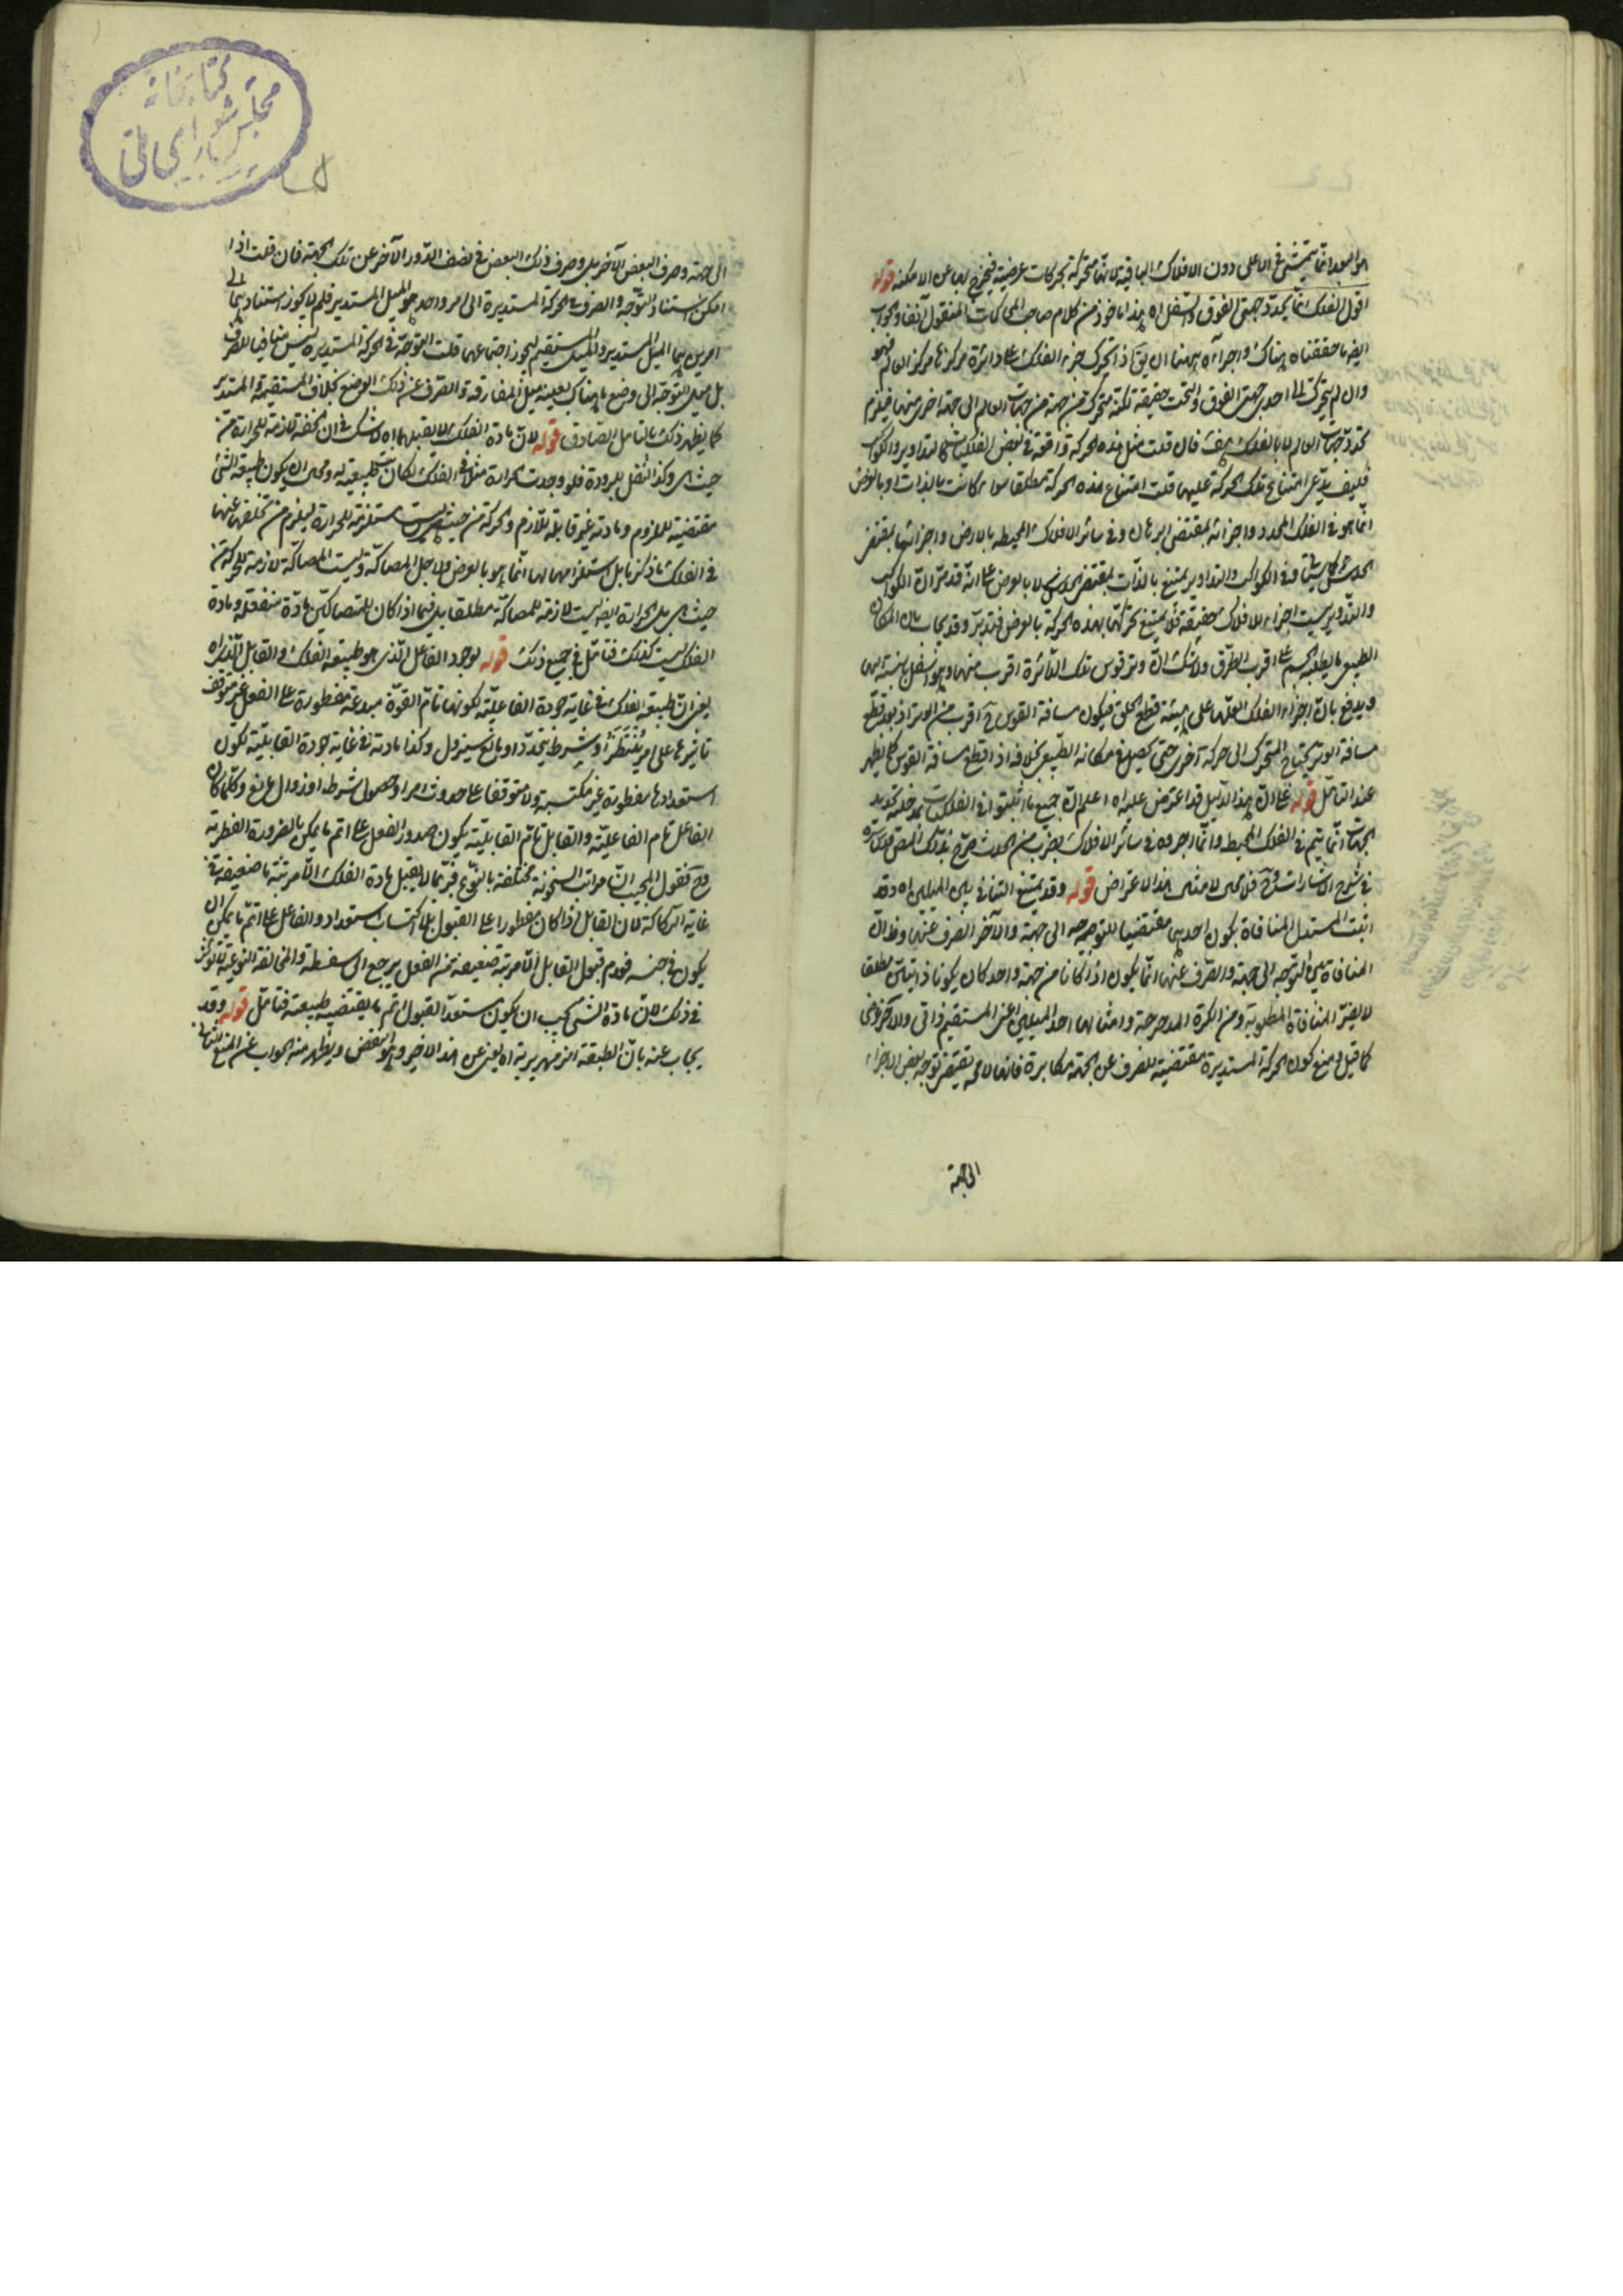 هو البعد انما يتمشى في الاعلى دون الافلاك الباقية لانها متحركة بحركات عرضية فيخرج بها عن الامكنة قوله
اقول الفلك انما يحدد جهتي الفوق والسفل اه هذا ماخوذ من كلام صاحب المحاكمات المنقول آنفا وجوابه
ايضا ما حققناه هناك واجراؤه ههنا ان يق اذا تحرك جزء الفلك على دائرة مركزها مركز العالم فهو
وان لم يتحرك الى احدى جهتي الفوق والتحت حقيقة لكنه متحرك من جهة من جهات العالم الى جهة اخرى منها فيلزم
تحدد جهات العالم لا بالفلك هف فان قلت مثل هذه الحركة واقعة في بعض الفلكيات كالتداوير والكواكب
فكيف يدعى امتناع تلك الحركة عليها قلت امتناع هذه الحركة مطلقا سواء كانت بالذات او بالعرض
انما هو في الفلك المحدد واجزائه بمقتضى البرهان وفي سائر الافلاك المحيطة بالارض واجزائها بمقتضى
الحدس وفي الكواكب والتداوير يمتنع بالذات بمقتضى الحدس لا بالعرض على انه قد مر ان الكواكب
والتدوير ليست اجزاء للافلاك حقيقة فلا يمتنع تحركها بهذه الحركة بالعرض فتدبر وقد يجاب بان المكان
الطبيعي ما يطلبه الجسم على اقرب الطرق ولا شك ان وتر قوس تلك الدائرة اقرب منها وهو اسفل بالنسبة اليها
ويدفع بان اجزاء الفلك العلتها على هيئة قطع الحلق فيكون مسافة القوس ح اقرب من الوتر اذ بعد قطع
مسافة الوتر يحتاج المتحرك الى حركة اخرى حتى يحصل في مكانه الطبيعي بخلافه اذا قطع مسافة القوس كما يظهر
عند التامل قوله على ان هذا الدليل قد اعترض عليه اه اعلم ان جميع ما اثبتوا في الفلكيات بمدخلية تحديد
الجهات انما يتم في الفلك المحيط وانما اجروه في سائر الافلاك بضرب من الحدس صرح بذلك المص
في شرح الاشارات وح فلا معنى لامثال هذا الاعتراض قوله وقد يمتنع التنافي بين الميلين اه وقد
اثبت المستدل المنافاة بكون احدهما مقتضيا للتوجه الى جهة والآخر الصرف عنها وظ ان
المنافاة بين التوجه الى جهة والصرف عنها انما يكون اذا كانا من جهة واحد كان يكونا ذاتيين مطلقا
لا يضر المنافاة المطلوبة ومن الكرة المدحرجة وامثالها احد الميلين اعني المستقيم ذاتي والآخر عرضي
كما قيل ومنع كون الحركة المستديرة مقتضية للصرف عن الجهة مكابرة فانها لا محة يقتضي توجه بعض الاجزاء
الى جهة
كتابخانه
مجلس شورای ملی
الى جهة وصرف البعض الآخر بل وصرف ذلك البعض في نصف الدور الآخر عن تلك الجهة فان قلت اذا
امكن استناد التوجه والصرف في الحركة المستديرة الى امر واحد هو الميل المستدير فلم لا يجوز استنادهما الى
امرين هما الميل المستدير والميل المستقيم ليجوز اجتماعهما قلت التوجه في الحركة المستديرة ليس منافيا للصرف
بل ميل التوجه الى وضع ما هناك بعينه ميل المفارقة والصرف عن ذلك الوضع بخلاف المستقيمة والمستدير
كما يظهر ذلك بالتامل الصادق قوله لان مادة الفلك لا يقبلهما اه لا شك في ان الخفة لازمة للحرارة من
حيث هي وكذا الثقل للبرودة فلو وجدت الحرارة مثلا في الفلك لكان طبيعة له ومحال ان يكون طبيعة الشئ
مقتضية للملزوم ومادته غير قابلة للازم والحركة من حيث هي ليست مستلزمة للحرارة ليلزم من تخلفها عنها
في الفلك ما ذكر بل استلزامها لها انما هو بالعرض ولاجل المصاكة وليست المصاكة لازمة للحركة من
حيث هي بل الحرارة ايضا ليست لازمة للمصاكة مطلقا بل فيما اذا كان للمتصاكين مادة منفعلة ومادة
الفلك ليست كذلك فتامل في جميع ذلك قوله لوجود الفاعل الذي هو طبيعة الفلك والقابل الذي اه
يعني ان طبيعة الفلك في غاية جودة الفاعلية لكونها تام القوة مبدعة مفطورة على الفعل غير متوقف
تاثيرها على امر يُنتظر او شرط يتجدد او مانع سيزول وكذا مادته في غاية جودة القابلية لكون
استعدادها مفطورة غير مكتسبة ولا متوقفا على حدوث امر او حصول شرط او زوال مانع وكلما كان
الفاعل تام الفاعلية والقابل تام القابلية يكون صدور الفعل على اتم ما يمكن بالضرورة الفطرية
وح فقول المجيب ان مراتب السخونة مختلفة بالنوع فربما لا يقبل مادة الفلك الا مرتبة ضعيفة في
غاية الركاكة لان القابل اذا كان مفطورا على القبول بلا اكتساب استعداد والفاعل على اتم ما يمكن ان
يكون في جنسه فعدم قبول القابل الا مرتبة ضعيفة من الفعل يرجع الى سفسطة والمخالفة النوعية لا يؤثر
في ذلك لان مادة الشئ يجب ان يكون مستعد القبول اتم ما يقتضيه طبيعته فتامل قوله وقد
يجاب عنه بان الطبقة الزمهريرية اه يعني عن هذا الاخير وهو النقض ويظهر منه الجواب عن المنع الثاني